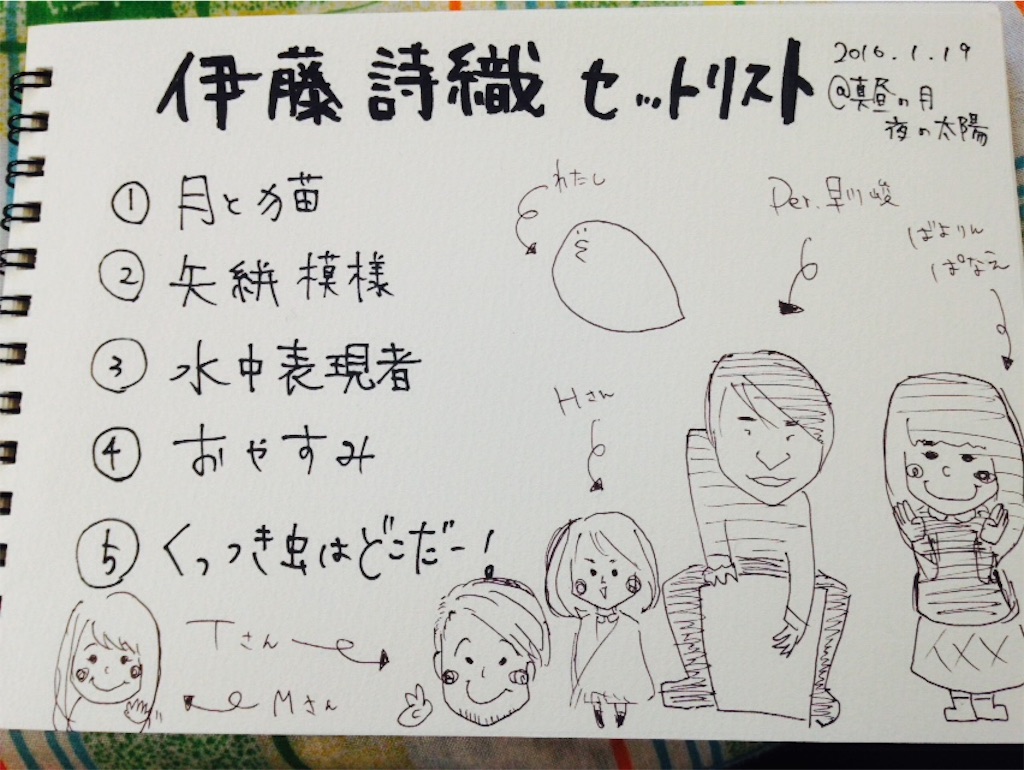 伊藤詩織 セットリスト
2016.1.19
@真昼の月
夜の太陽
① 月と猫
② 矢絣模様
③ 水中表現者
④ おやすみ
⑤ くっつき虫はどこだー!
わたし
Per.早川峻
ばよりん
ぱなえ
Hさん
Tさん
Mさん